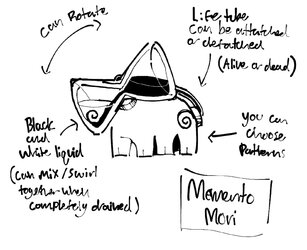 Can Rotate
Life tube
can be attatched
or detatched
(Alive or dead)
Black
and
white liquid
(can mix/swirl
together when
completely drained)
you can
choose
Patterns
Memento
Mori